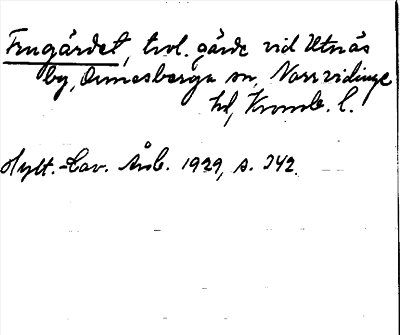 Frugärdet, trol. gärde vid Utnäs
by, Ormesberga sn, Norrvidinge
hd, Kronob. l.
Hylt.-Cav. Årsb. 1929, s. 342.